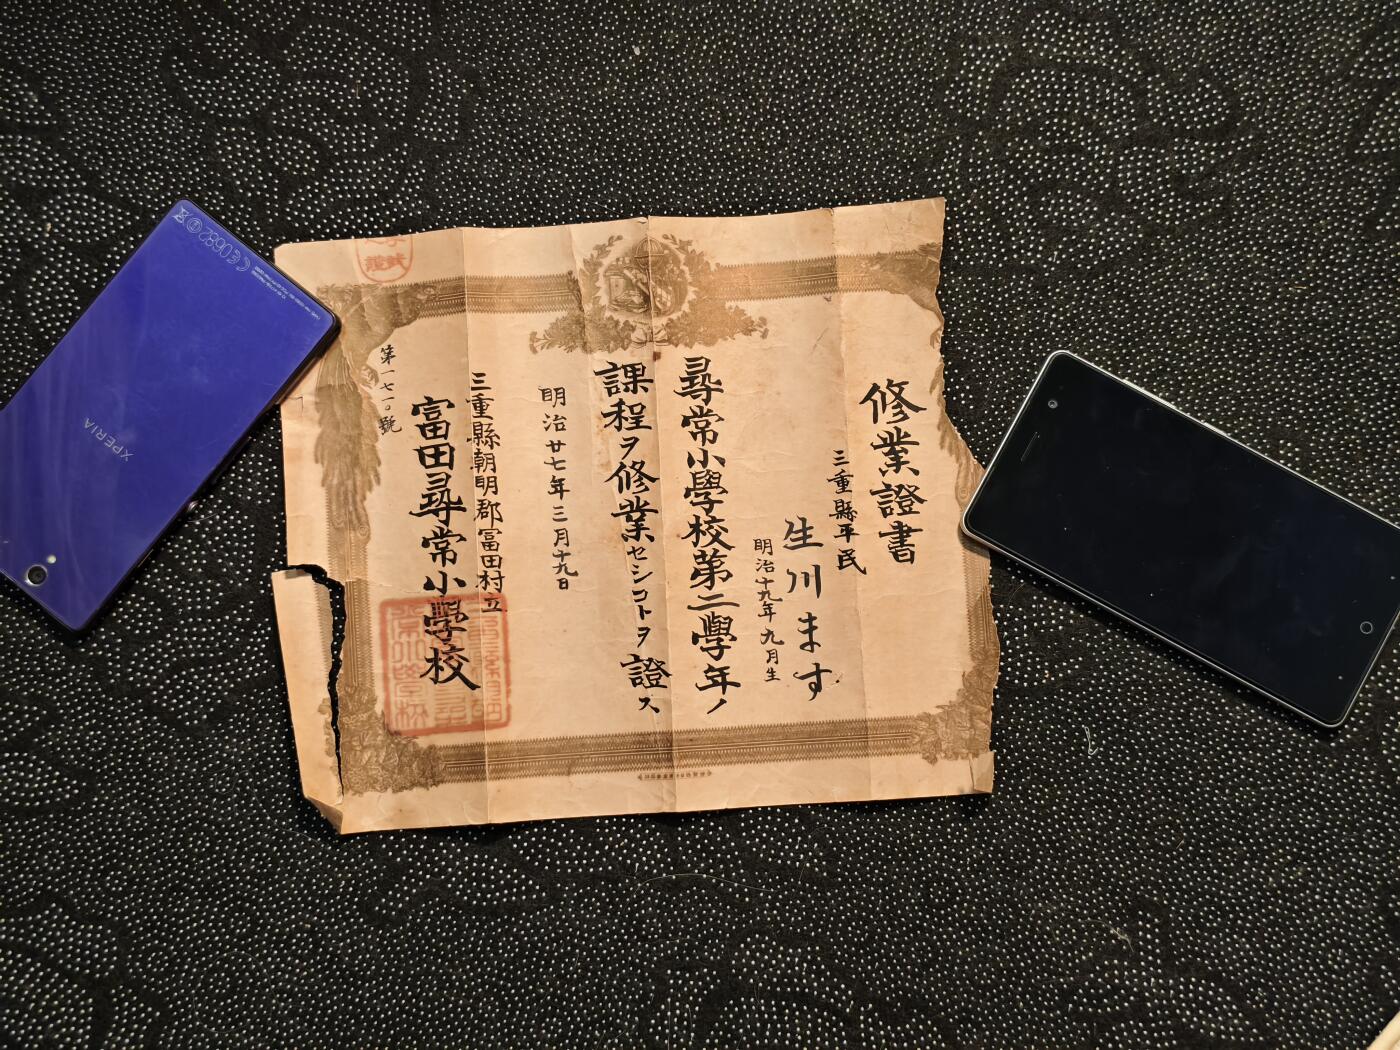 修業證書
三重縣平民
生川ます
明治十九年九月生
尋常小學校第二學年ノ
課程ヲ修業セシコトヲ證ス
明治廿七年三月十九日
三重縣朝明郡富田村立
富田尋常小學校
第一七一〇號
XPERIA
CE0682